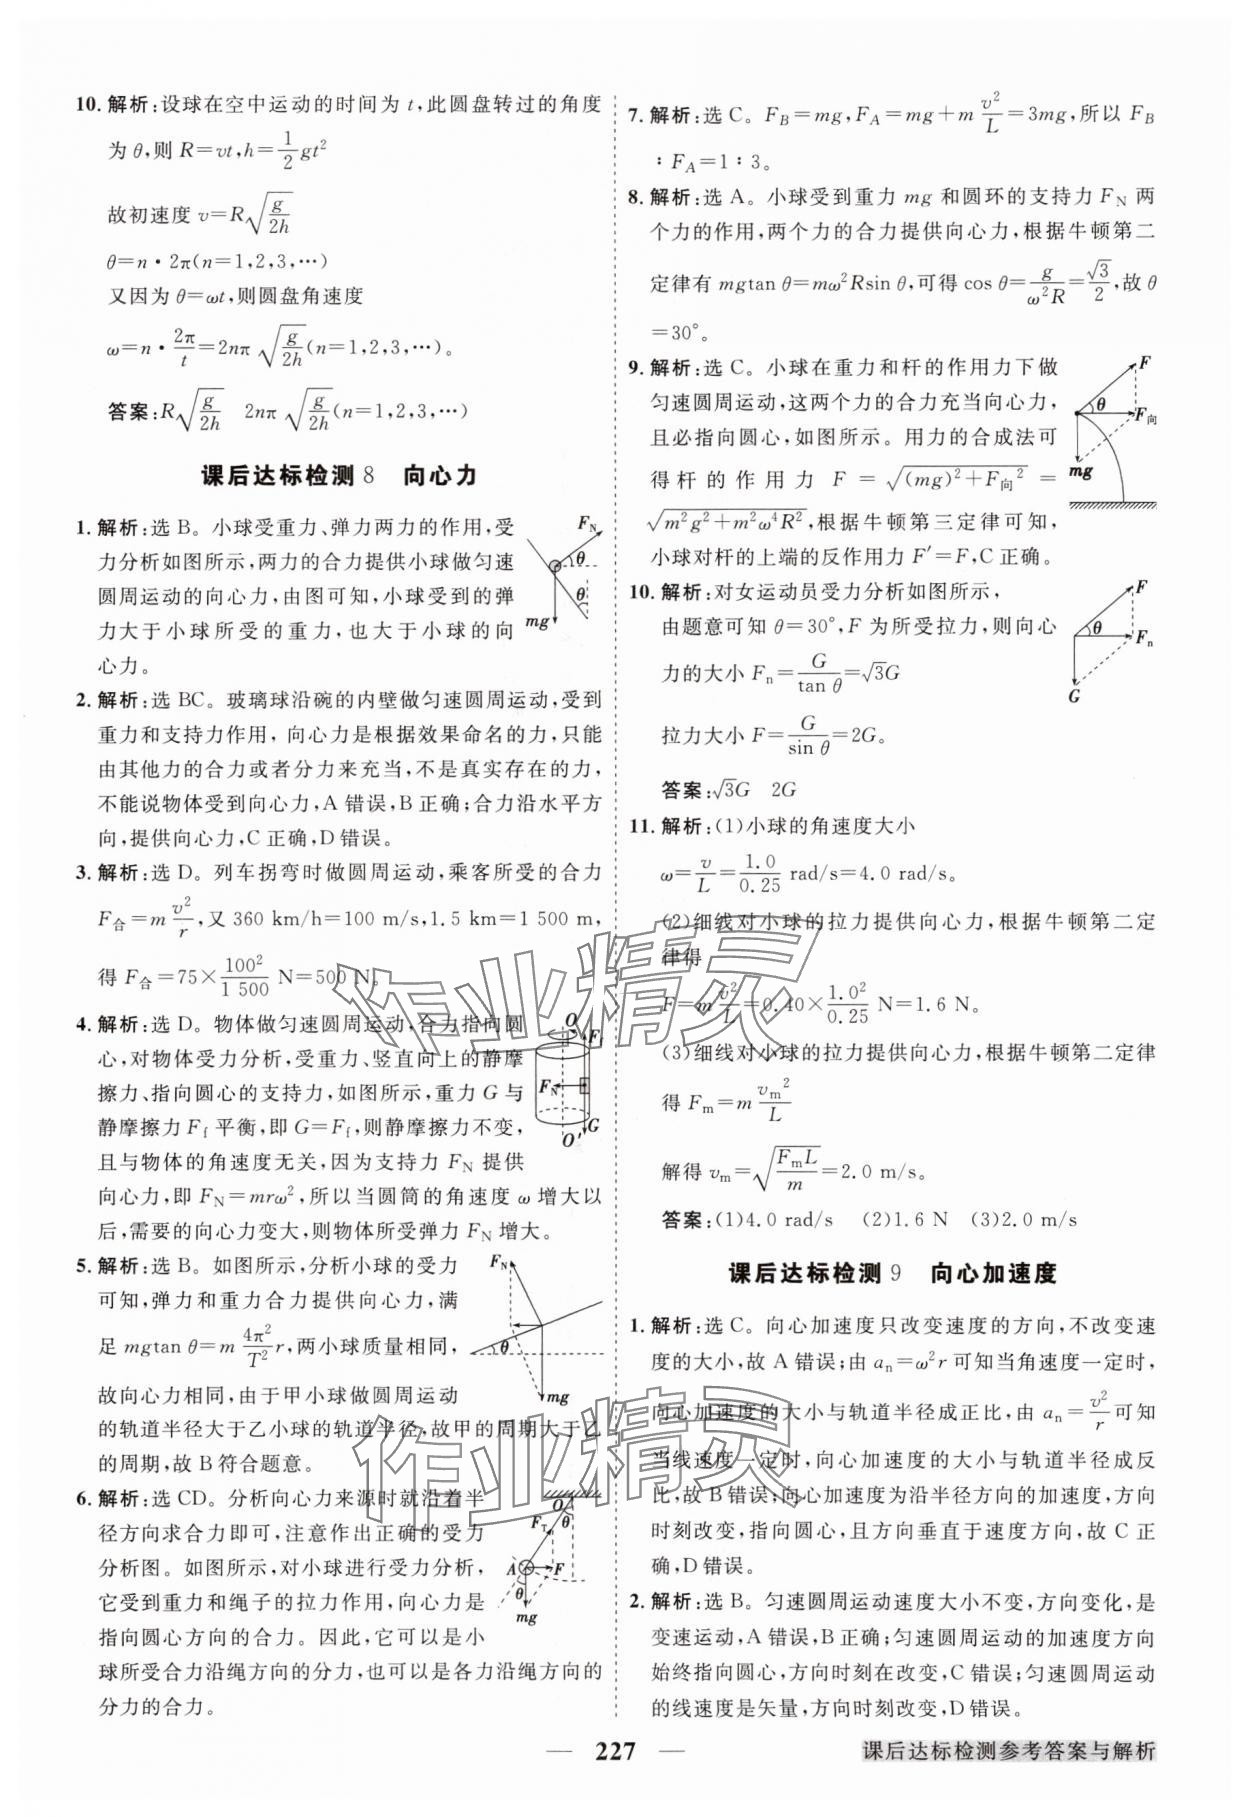 10. 解析:设球在空中运动的时间为 t,此圆盘转过的角度
为 θ,则 R=vt,h=1/2 gt²
故初速度 v=R√(g/2h)
θ=n·2π(n=1,2,3,…)
又因为 θ=ωt,则圆盘角速度
ω=n·2π/t=2nπ√(g/2h)(n=1,2,3,…)。
答案:R√(g/2h)  2nπ√(g/2h)(n=1,2,3,…)
课后达标检测 8 向心力
1. 解析:选 B。小球受重力、弹力两力的作用,受
力分析如图所示,两力的合力提供小球做匀速
圆周运动的向心力,由图可知,小球受到的弹
力大于小球所受的重力,也大于小球的向
心力。
F_N
θ
θ
mg
2. 解析:选 BC。玻璃球沿碗的内壁做匀速圆周运动,受到
重力和支持力作用, 向心力是根据效果命名的力,只能
由其他力的合力或者分力来充当,不是真实存在的力,
不能说物体受到向心力,A 错误,B 正确;合力沿水平方
向,提供向心力,C 正确,D 错误。
3. 解析:选 D。列车拐弯时做圆周运动,乘客所受的合力
F合=m v²/r,又 360 km/h=100 m/s,1.5 km=1 500 m,
得 F合=75×100²/1 500 N=500 N。
4. 解析:选 D。物体做匀速圆周运动,合力指向圆
心,对物体受力分析,受重力、竖直向上的静摩
擦力、指向圆心的支持力,如图所示,重力 G 与
静摩擦力 F_f 平衡,即 G=F_f,则静摩擦力不变,
且与物体的角速度无关,因为支持力 F_N 提供
向心力,即 F_N=mrω²,所以当圆筒的角速度 ω 增大以
后,需要的向心力变大,则物体所受弹力 F_N 增大。
O
F_f
F_N
G
O′
5. 解析:选 B。如图所示,分析小球的受力
可知,弹力和重力合力提供向心力,满
足 mgtan θ=m 4π²/T² r,两小球质量相同,
故向心力相同,由于甲小球做圆周运动
的轨道半径大于乙小球的轨道半径,故甲的周期大于乙
的周期,故 B 符合题意。
F_N
θ
mg
6. 解析:选 CD。分析向心力来源时就沿着半
径方向求合力即可,注意作出正确的受力
分析图。如图所示,对小球进行受力分析,
它受到重力和绳子的拉力作用,向心力是
指向圆心方向的合力。因此,它可以是小
球所受合力沿绳方向的分力,也可以是各力沿绳方向的
分力的合力。
O
θ
F_T
A
F
θ
mg
7. 解析:选 C。F_B=mg,F_A=mg+m v²/L=3mg,所以 F_B
∶F_A=1∶3。
8. 解析:选 A。小球受到重力 mg 和圆环的支持力 F_N 两
个力的作用,两个力的合力提供向心力,根据牛顿第二
定律有 mgtan θ=mω²Rsin θ,可得 cos θ=g/ω²R=√3/2,故 θ
=30°。
9. 解析:选 C。小球在重力和杆的作用力下做
匀速圆周运动,这两个力的合力充当向心力,
且必指向圆心,如图所示。用力的合成法可
得杆的作用力 F=√((mg)²+F向²)=
√(m²g²+m²ω⁴R²),根据牛顿第三定律可知,
小球对杆的上端的反作用力 F′=F,C 正确。
F
θ
F向
mg
10. 解析:对女运动员受力分析如图所示,
由题意可知 θ=30°,F 为所受拉力,则向心
力的大小 F_n=G/tan θ=√3G
拉力大小 F=G/sin θ=2G。
答案:√3G  2G
F
θ
F_n
G
11. 解析:(1)小球的角速度大小
ω=v/L=1.0/0.25 rad/s=4.0 rad/s。
(2)细线对小球的拉力提供向心力,根据牛顿第二定
律得
F=m v²/L=0.40×1.0²/0.25 N=1.6 N。
(3)细线对小球的拉力提供向心力,根据牛顿第二定律
得 F_m=m v_m²/L
解得 v_m=√(F_mL/m)=2.0 m/s。
答案:(1)4.0 rad/s  (2)1.6 N  (3)2.0 m/s
课后达标检测 9 向心加速度
1. 解析:选 C。向心加速度只改变速度的方向,不改变速
度的大小,故 A 错误;由 a_n=ω²r 可知当角速度一定时,
向心加速度的大小与轨道半径成正比,由 a_n=v²/r 可知
当线速度一定时,向心加速度的大小与轨道半径成反
比,故 B 错误;向心加速度为沿半径方向的加速度,方向
时刻改变,指向圆心,且方向垂直于速度方向,故 C 正
确,D 错误。
2. 解析:选 B。匀速圆周运动速度大小不变,方向变化,是
变速运动,A 错误,B 正确;匀速圆周运动的加速度方向
始终指向圆心,方向时刻在改变,C 错误;匀速圆周运动
的线速度是矢量,方向时刻改变,D 错误。
作业精灵
作业精灵
— 227 —
课后达标检测参考答案与解析